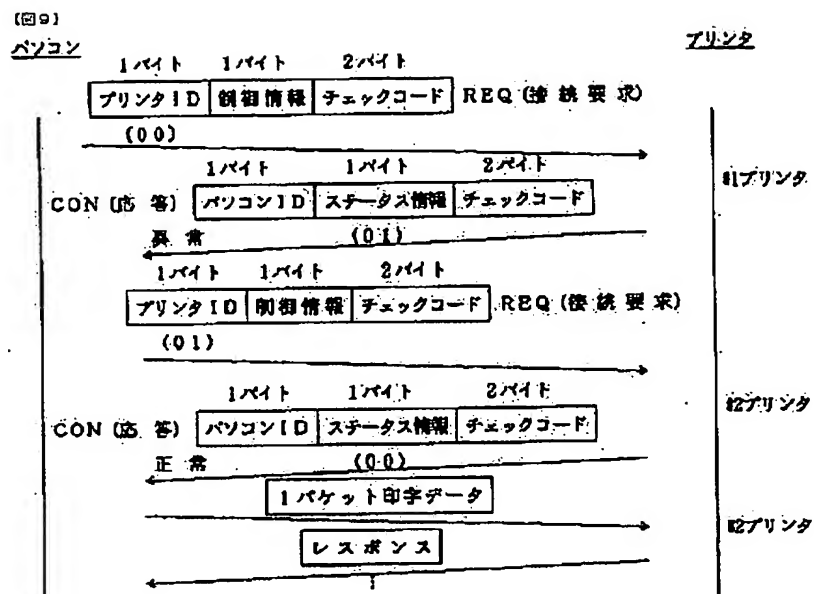 【図9】
パソコン
プリンタ
1バイト 1バイト 2バイト
プリンタID 制御情報 チェックコード REQ(接続要求)
(00)
#1プリンタ
1バイト 1バイト 2バイト
CON(応答) パソコンID ステータス情報 チェックコード
異常 (01)
1バイト 1バイト 2バイト
プリンタID 制御情報 チェックコード REQ(接続要求)
(01)
#2プリンタ
1バイト 1バイト 2バイト
CON(応答) パソコンID ステータス情報 チェックコード
正常 (00)
1パケット印字データ
#2プリンタ
レスポンス